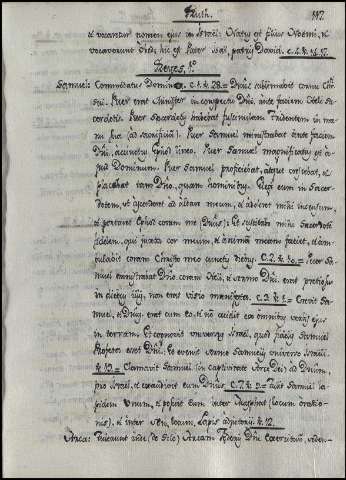 Ruth. 112
et vocantur nomen ejus in Israel. Natus est filius Noemi, et
vocaverunt Obed; hic est Pater Isai, patris David. c. 4. v. 14. 17.
Reges, 1.º
Samuel: Commodatus Domino. c. 1. v. 28. = Deus sublimabit cornu Christi
sui. Puer erat Minister in conspectu Dni. ante faciem Heli Sa-
cerdotis. Puer Sacerdotis habebat fuscinulam Tridentem in ma-
nu sua (ad sacrificium). Puer Samuel ministrabat ante faciem
Dni., accinctus lineo. Puer Samuel magnificatus est a-
pud Dominum. Puer Samuel proficiebat, atque crescebat, et
placebat tam Dno., quam hominibus. Elegi eum in Sacer-
dotem, ut ascenderet ad altare meum, et adoleret mihi incensum,
et portaret Ephod coram me (Dnus): Et suscitabo mihi Sacerdotem
fidelem, qui juxta cor meum, et animam meam faciet, et am-
bulabit coram Christo meo cunctis diebus. c. 2. = Puer Sa-
muel ministrabat Dno. coram Heli, et sermo Dni. erat pretiosus
in diebus illis, non erat visio manifesta. c. 3. v. 1. = Crevit Sa-
muel, et Dnus. erat cum eo, et non cecidit ex omnibus verbis ejus
in terram. Et cognovit universus Israel, quod fidelis Samuel
Propheta erat Dni. Et evenit sermo Samuelis universo Israeli.
v. 19. = Clamavit Samuel (in captivitate Arcae Dei) ad Dnum.
pro Israel, et exaudivit eum Dnus. c. 7. v. 9. = Tulit Samuel la-
pidem unum, et posuit eum inter Masphat (locum oratio-
nis), et inter Sen; locum, Lapis adjutorij. v. 12.
Arca: Tulerunt inde (de Silo) Arcam Foederis Dni. Exercituum, seden-